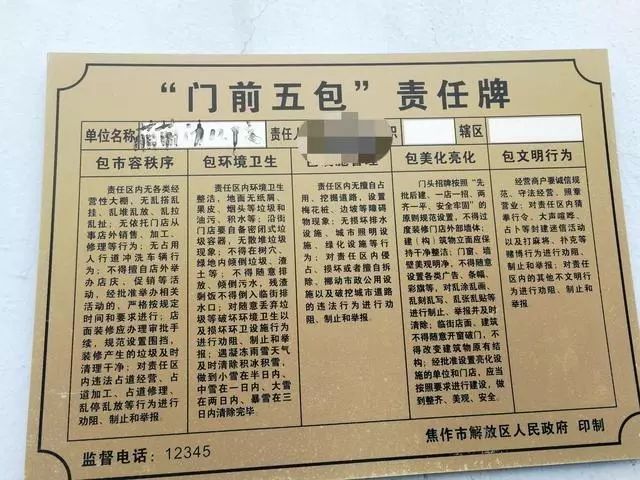 “门前五包”责任牌
单位名称 责任人 辖区
包市容秩序
责任区内无各类经
营性大棚，无乱搭乱
挂、乱堆乱放、乱拉
乱扯；无依托门店从
事店外销售、加工、
修理等行为；无占用
人行道冲洗车辆行
为；不得擅自店外举
办店庆、促销等活
动，经批准举办相关
活动的，严格按规定
时间和要求进行；店
面装修应办理审批手
续，规范设置围挡，
装修产生的垃圾及时
清理干净；对责任区
内违法占道经营、占
道加工、占道修理、
乱停乱放等行为进行
劝阻、制止和举报。
包环境卫生
责任区内环境卫生
整洁，地面无纸屑、
果皮、烟头等垃圾和
油污、积水等；沿街
门店要自备密闭式垃
圾容器，无散堆垃圾
现象；不得在树穴、
绿地内倾倒垃圾、渣
土等；不得随意排
放、倾倒污水，残渣
剩饭不得倒入临街排
水口；对随意丢弃垃
圾等破坏环境卫生以
及损坏环卫设施行为
进行劝阻、制止和举
报；遇凝冻雨雪天气
及时清除积冰积雪，
做到小雪在半日内、
中雪在一日内、大雪
在两日内、暴雪在三
日内清除完毕
责任区内无擅自占
用、挖掘道路，设置
梅花桩、边坡等障碍
物现象；无损坏排水
设施、城市照明设
施、绿化设施等行
为；对责任区内侵
占、损坏或者擅自拆
除、挪动市政公用设
施以及破坏城市道路
的违法行为进行劝
阻、制止和举报。
包美化亮化
门头招牌按照“先
批后建、一店一招、两
齐一平、安全牢固”的
原则规范设置，不得过
度装修门店外部墙体；
建（构）筑物立面应保
持干净整洁；门窗、墙
壁美观明净，不得随意
设置各类广告、条幅、
彩旗等，对乱涂乱画、
乱刻乱写、乱张乱贴等
进行制止、举报并及时
清除；临街店面、建筑
不得随意开窗破门，不
得改变建筑物原有结
构；经批准设置亮化设
施的单位和门店，应当
按照要求进行建设，做
到整齐、美观、安全。
包文明行为
经营商户要诚信规
范、守法经营、照章营
业；对责任区内猜
拳行令、大声喧哗、
占卜等封建迷信活动
以及打麻将、扑克等
赌博行为进行劝阻、
制止和举报；对责任
区内的其他不文明行
为进行劝阻、制止和
举报。
监督电话：12345
焦作市解放区人民政府 印制